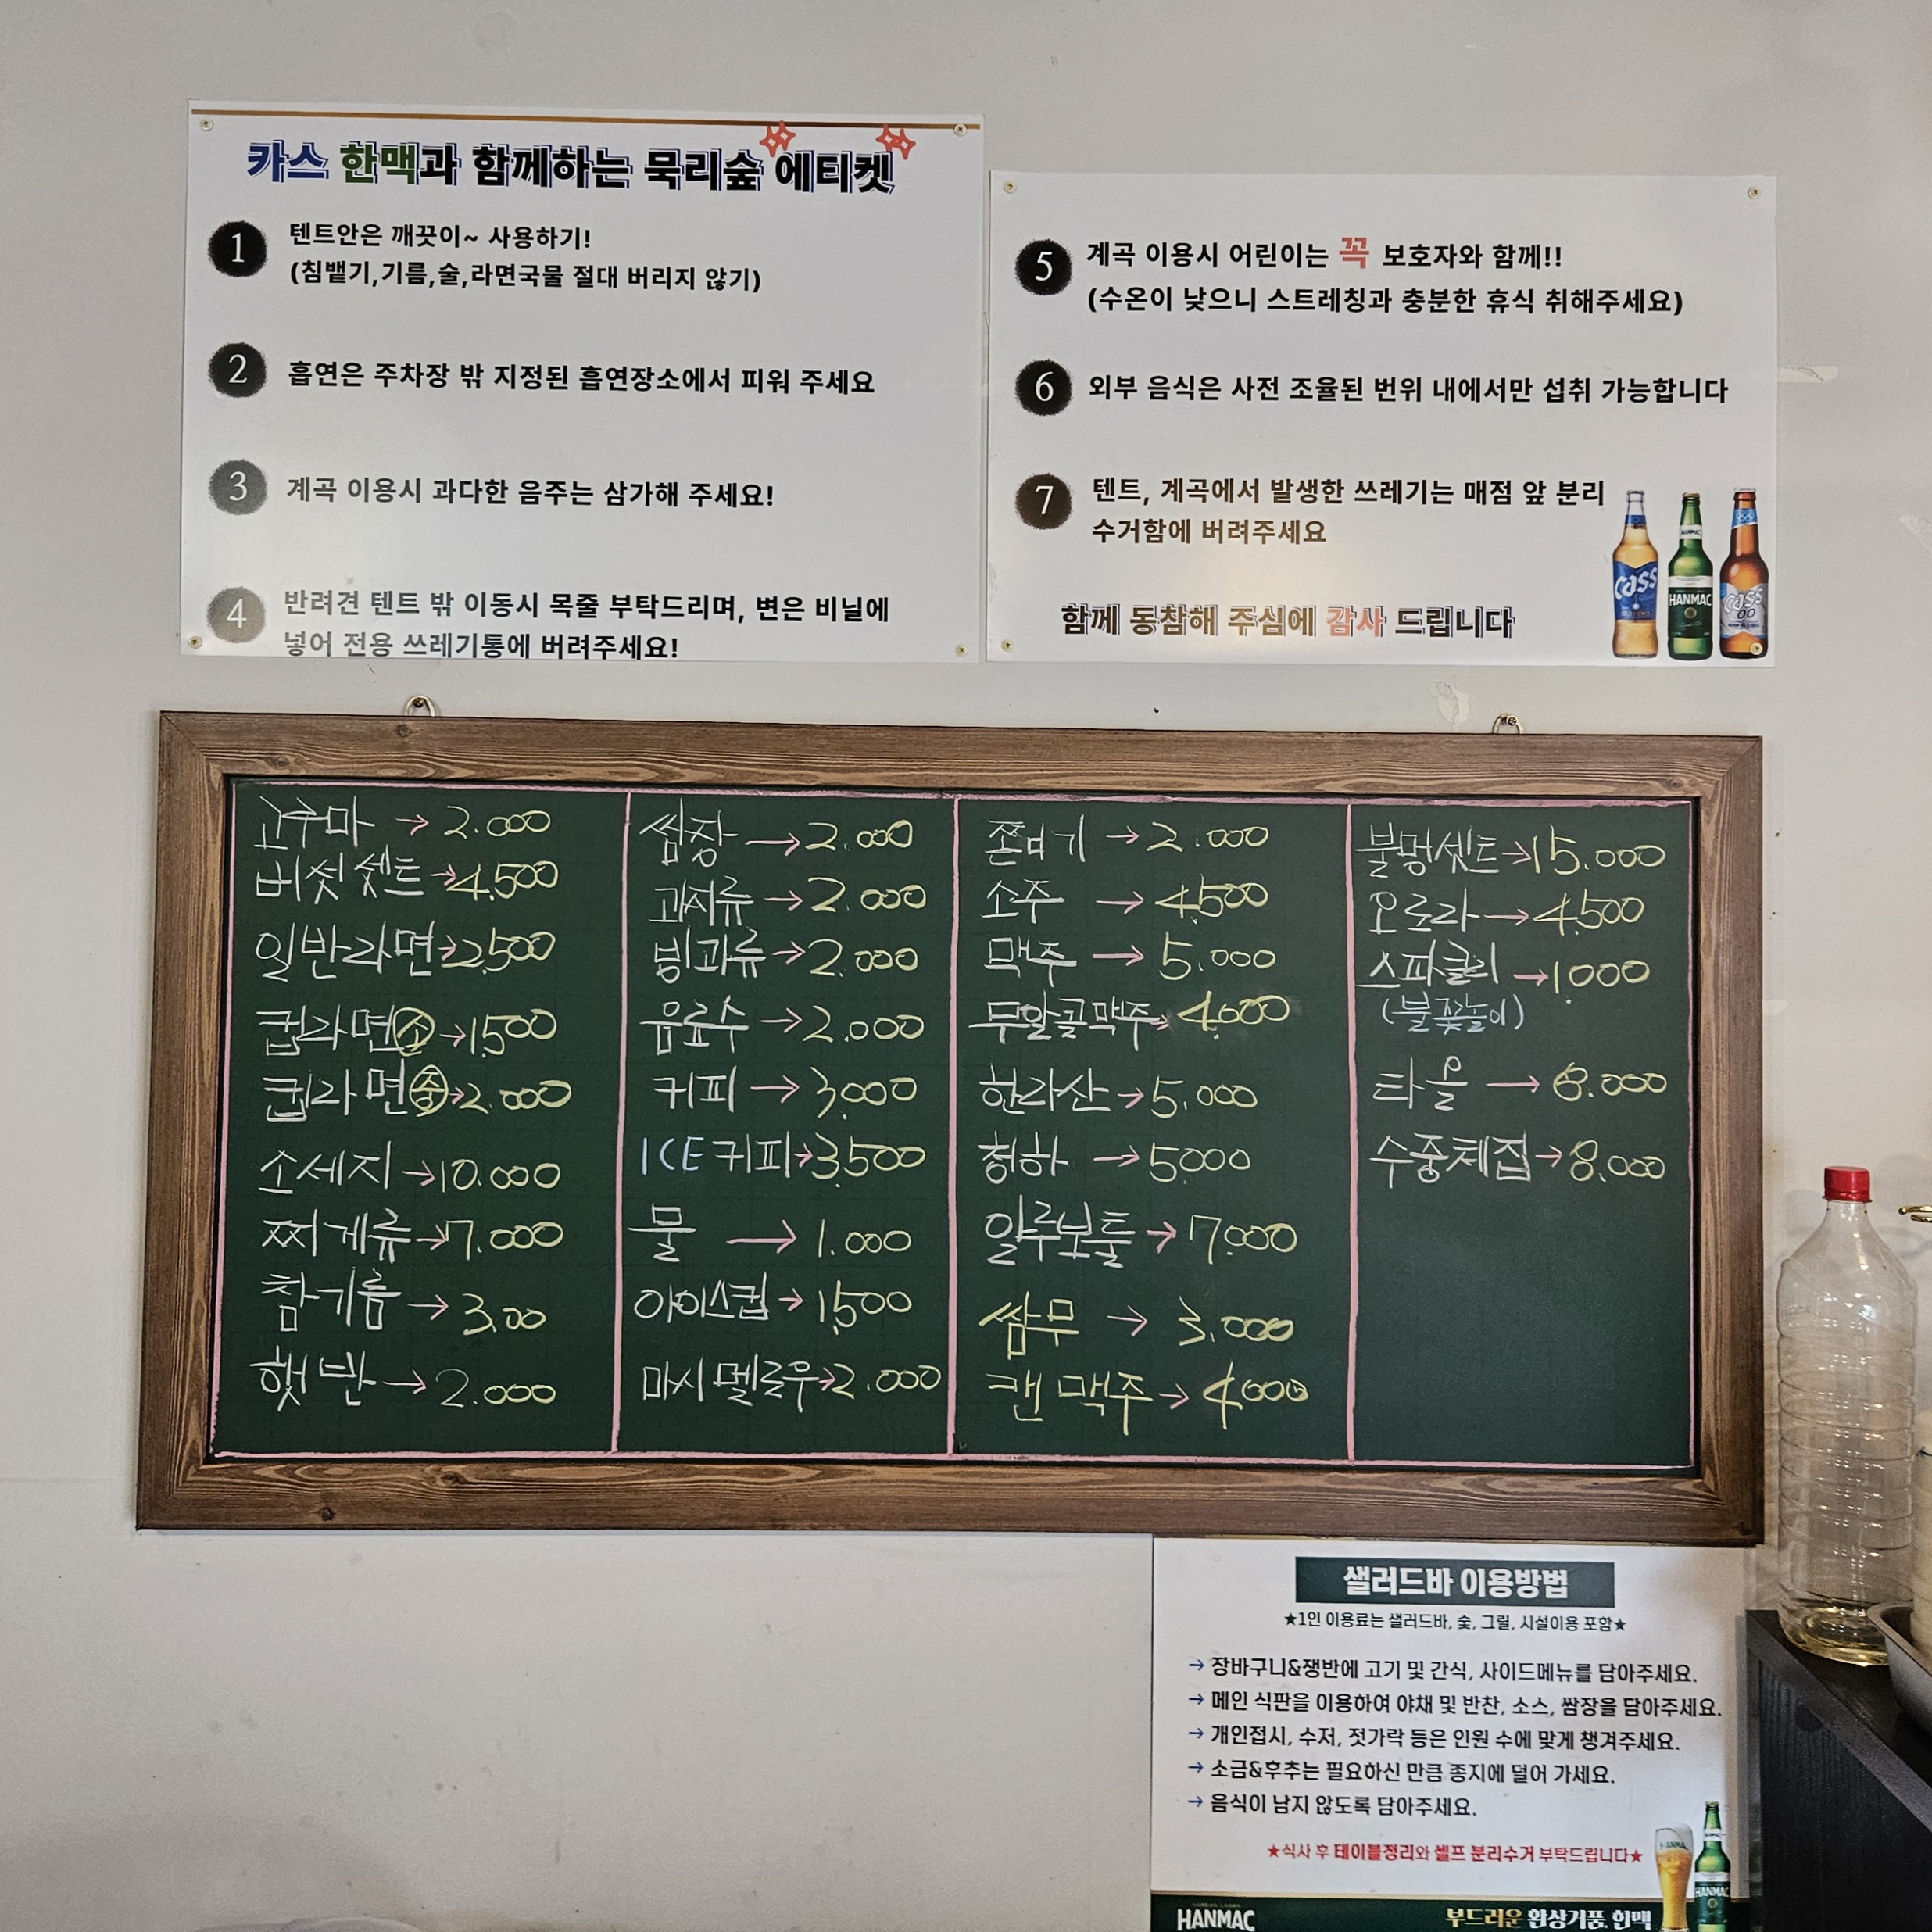 카스 한맥과 함께하는 묵리숲 에티켓
1 텐트안은 깨끗이~ 사용하기!
(침뱉기,기름,술,라면국물 절대 버리지 않기)
2 흡연은 주차장 밖 지정된 흡연장소에서 피워 주세요
3 계곡 이용시 과다한 음주는 삼가해 주세요!
4 반려견 텐트 밖 이동시 목줄 부탁드리며, 변은 비닐에
넣어 전용 쓰레기통에 버려주세요!
5 계곡 이용시 어린이는 꼭 보호자와 함께!!
(수온이 낮으니 스트레칭과 충분한 휴식 취해주세요)
6 외부 음식은 사전 조율된 번위 내에서만 섭취 가능합니다
7 텐트, 계곡에서 발생한 쓰레기는 매점 앞 분리
수거함에 버려주세요
함께 동참해 주심에 감사 드립니다
Cass
HANMAC
HANMAC
Cass
0.0
고구마 → 2.000
버섯셋트 → 4.500
일반라면 → 2.500
컵라면 소 → 1.500
컵라면 중 → 2.000
소세지 → 10.000
찌게류 → 7.000
참기름 → 3.00
햇반 → 2.000
쌈장 → 2.000
과자류 → 2.000
빙과류 → 2.000
음료수 → 2.000
커피 → 3.000
ICE 커피 → 3.500
물 → 1.000
아이스컵 → 1.500
마시멜로우 → 2.000
쫀디기 → 2.000
소주 → 4.500
맥주 → 5.000
무알콜맥주 → 4.000
한라산 → 5.000
청하 → 5000
알루보틀 → 7.000
쌈무 → 3.000
캔맥주 → 4000
불멍셋트 → 15.000
오로라 → 4.500
스파클리 → 1000
(불꽃놀이)
타올 → 8.000
수중체집 → 8.000
샐러드바 이용방법
★1인 이용료는 샐러드바, 숯, 그릴, 시설이용 포함★
→ 장바구니&쟁반에 고기 및 간식, 사이드메뉴를 담아주세요.
→ 메인 식판을 이용하여 야채 및 반찬, 소스, 쌈장을 담아주세요.
→ 개인접시, 수저, 젓가락 등은 인원 수에 맞게 챙겨주세요.
→ 소금&후추는 필요하신 만큼 종지에 덜어 가세요.
→ 음식이 남지 않도록 담아주세요.
★식사 후 테이블정리와 셀프 분리수거 부탁드립니다★
HANMAC
HANMAC
HANMAC
부드러운 환상거품. 한맥